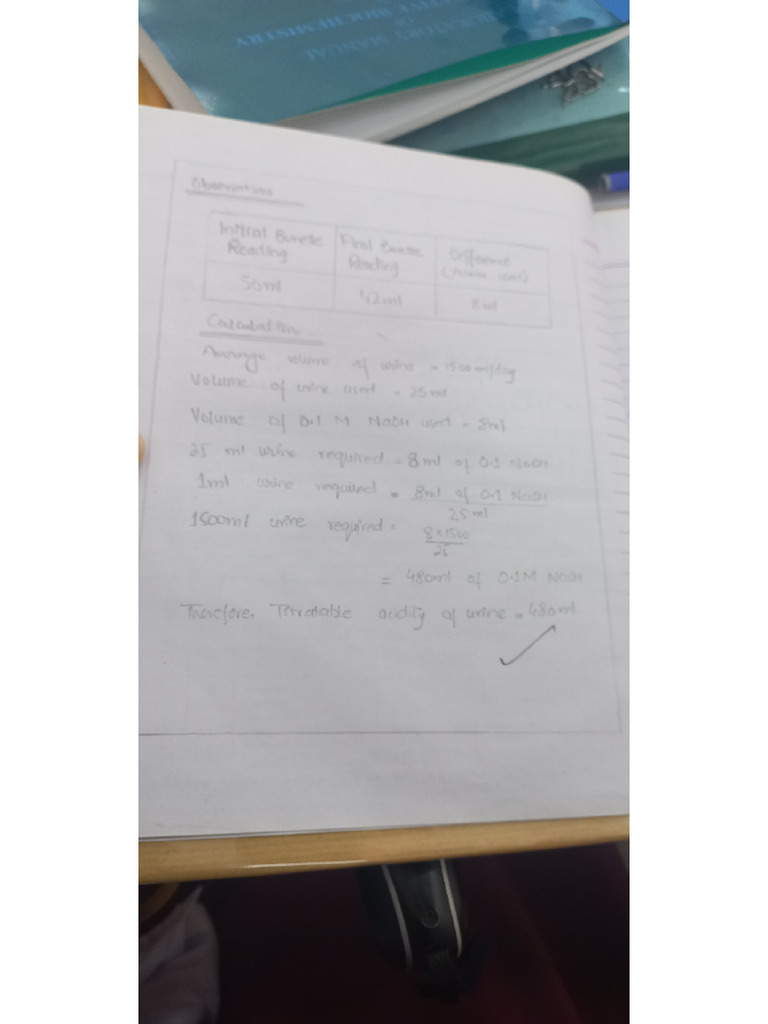 LABORATORY MANUAL
OF
BIOCHEMISTRY
Observations
Initial Burette Reading
Final Burette Reading
Difference (Volume used)
50ml
42ml
8 ml
Calculation
Average volume of urine = 1500 ml/day
Volume of urine used = 25 ml
Volume of 0.1 M NaOH used = 8ml
25 ml urine required = 8 ml of 0.1 NaOH
1ml urine required = 8ml of 0.1 NaOH
25 ml
1500ml urine required = 8 × 1500
25
= 480ml of 0.1M NaOH
Therefore, Titratable acidity of urine = 480ml